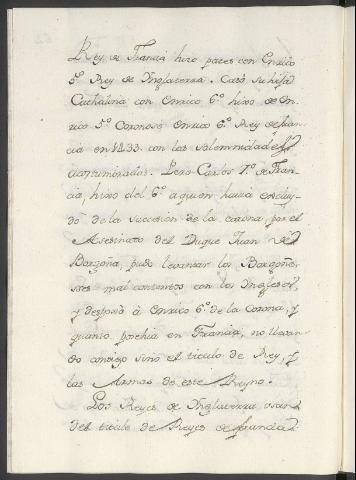 Rey de Francia hizo pazes con Enrico
5º Rey de Inglaterra. Casó su hija
Cathalina con Enrico 6º hixo de En-
rico 5º Coronose Enrico 6º Rey de Fran-
cia en 1433 con las solemnidades
acostumbradas. Pero Carlos 7º de Fran-
cia, hixo del 6º a quien havia exclui-
do de la succesion de la corona, por el
Asesinato del Duque Juan de
Borgoña, pudo levantar los Borgoñe-
ses mal contentos con los Ingleses,
y desposó à Enrico 6º de la Corona, y
quanto posehia en Francia, no llevan-
do consigo sino el titulo de Rey, y
las Armas de este Reyno.
Los Reyes de Inglaterra usan
del titulo de Reyes de Francia